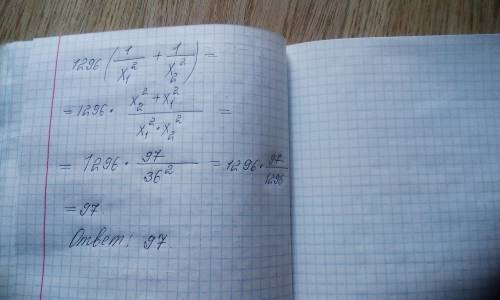 1296(1/x₁² + 1/x₂²) =
= 1296 · (x₂² + x₁²)/(x₁² · x₂²) =
= 1296 · 97/36² = 1296 · 97/1296
= 97
Ответ: 97